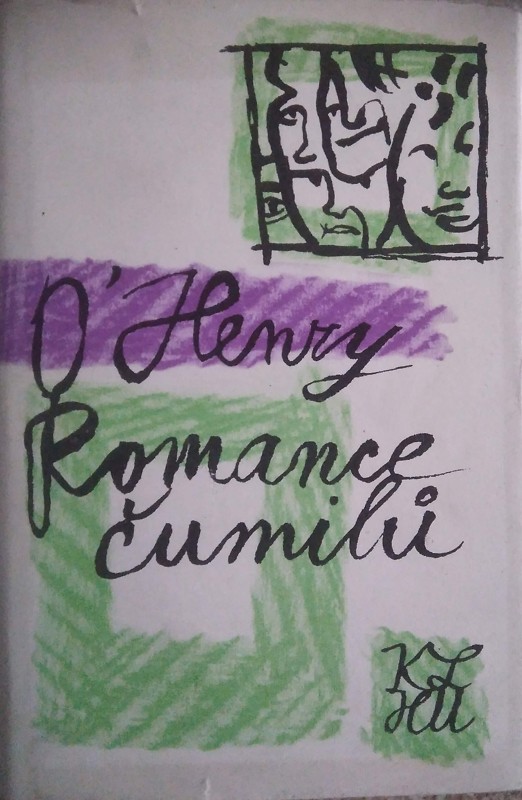 O'Henry
Romance
čumilů
KL
HU